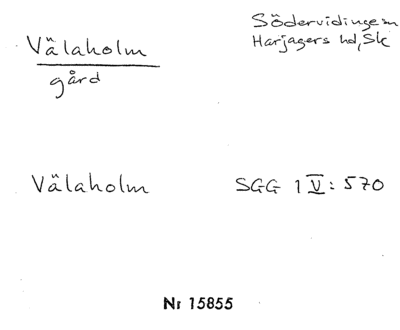 Välaholm
gård
Södervidinge sn
Harjagers hd, Sk
Välaholm
SGG 1 V: 570
Nr 15855